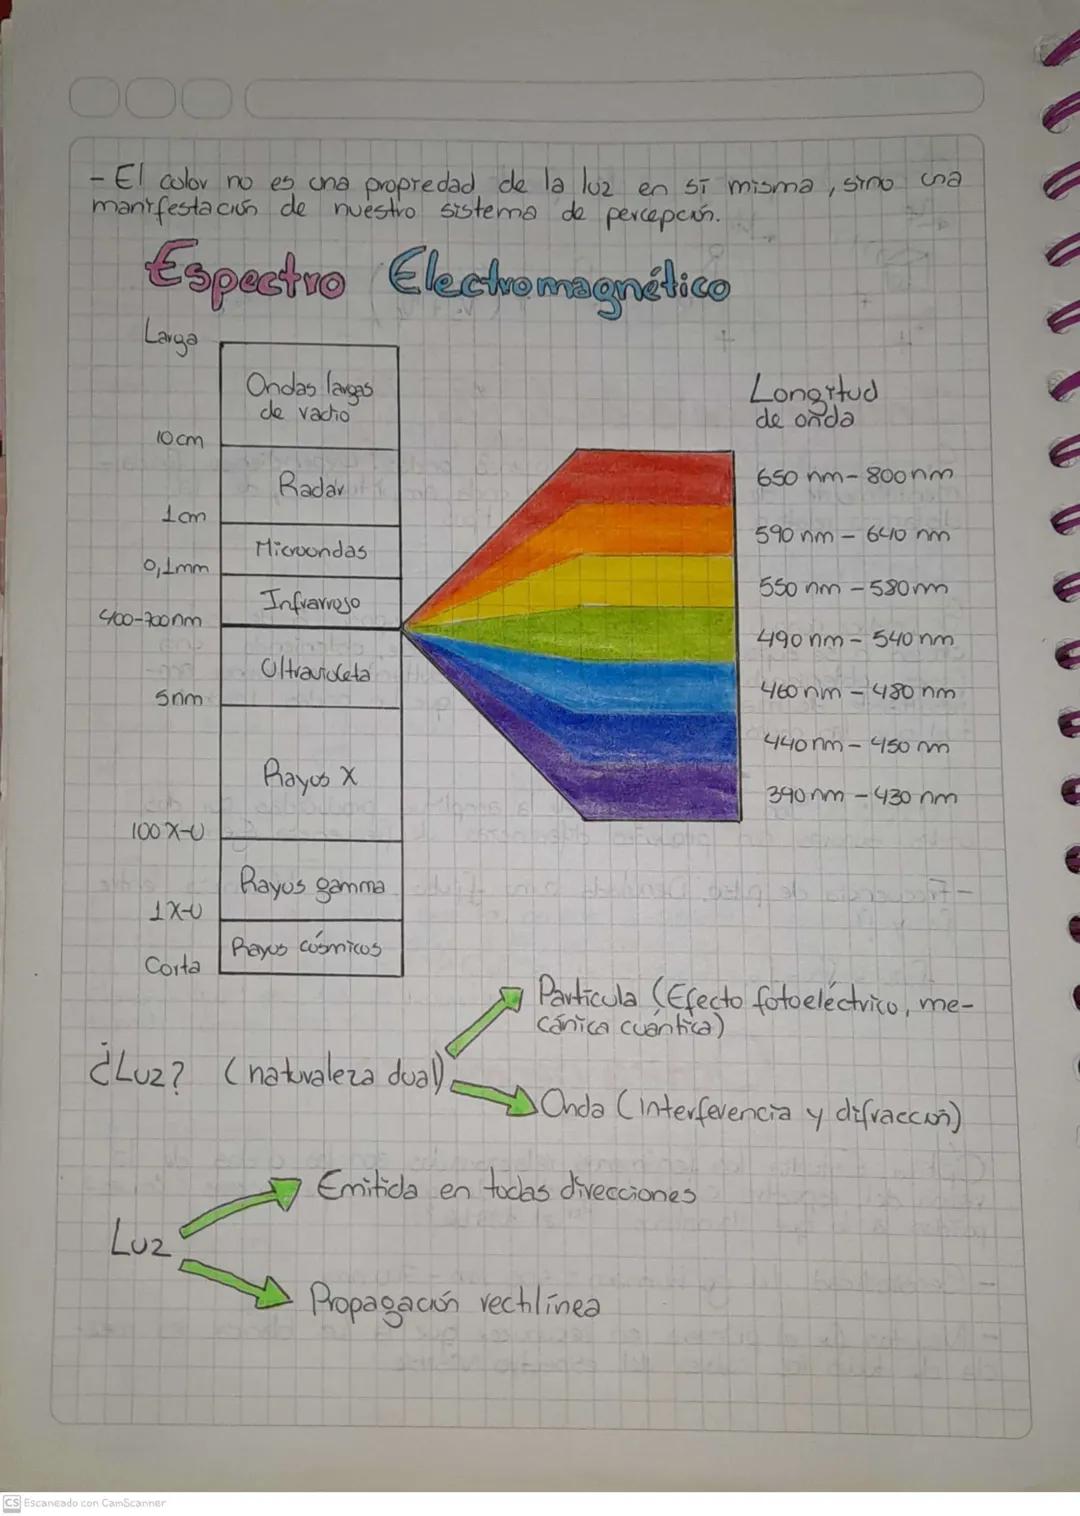 - El color no es una propiedad de la luz en sí misma, sino una
manifestación de nuestro sistema de percepción.
Espectro Electromagnético
Larga
Ondas largas
de vacío
10 cm
Radar
1 cm
Microondas
0,1mm
Infrarrojo
400-700nm
Ultravioleta
5nm
Rayos X
100 X-U
Rayos gamma
1 X-U
Rayos cósmicos
Corta
Longitud
de onda
650 nm - 800 nm
590 nm - 640 nm
550 nm - 580 nm
490 nm - 540 nm
460 nm - 480 nm
440 nm - 450 nm
390 nm - 430 nm
¿Luz? (naturaleza dual)
Partícula (Efecto fotoeléctrico, me-
cánica cuántica)
Onda (interferencia y difracción)
Luz
Emitida en todas direcciones
Propagación rectilínea
CS Escaneado con CamScanner